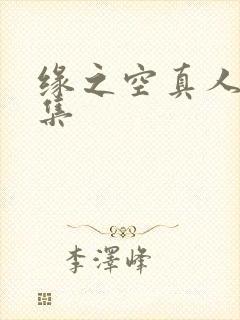 缘之空真人
集
李澤峰